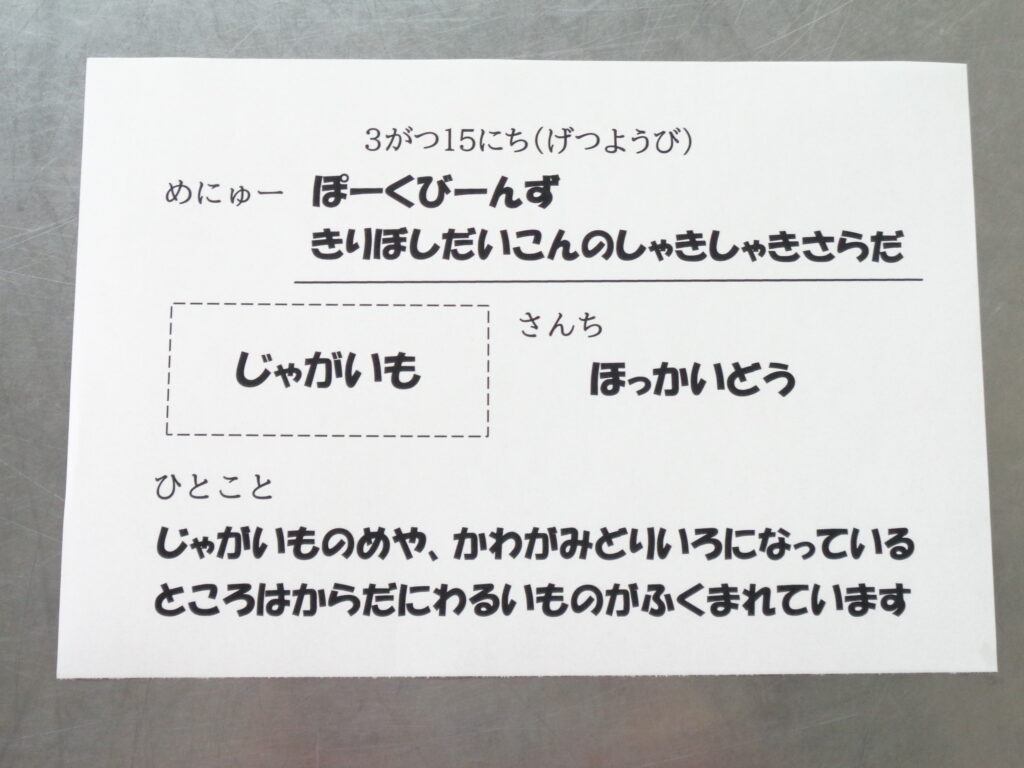 3がつ15にち(げつようび)
めにゅー ぽーくびーんず
きりぼしだいこんのしゃきしゃきさらだ
じゃがいも
さんち
ほっかいどう
ひとこと
じゃがいものめや、かわがみどりいろになっている
ところはからだにわるいものがふくまれています